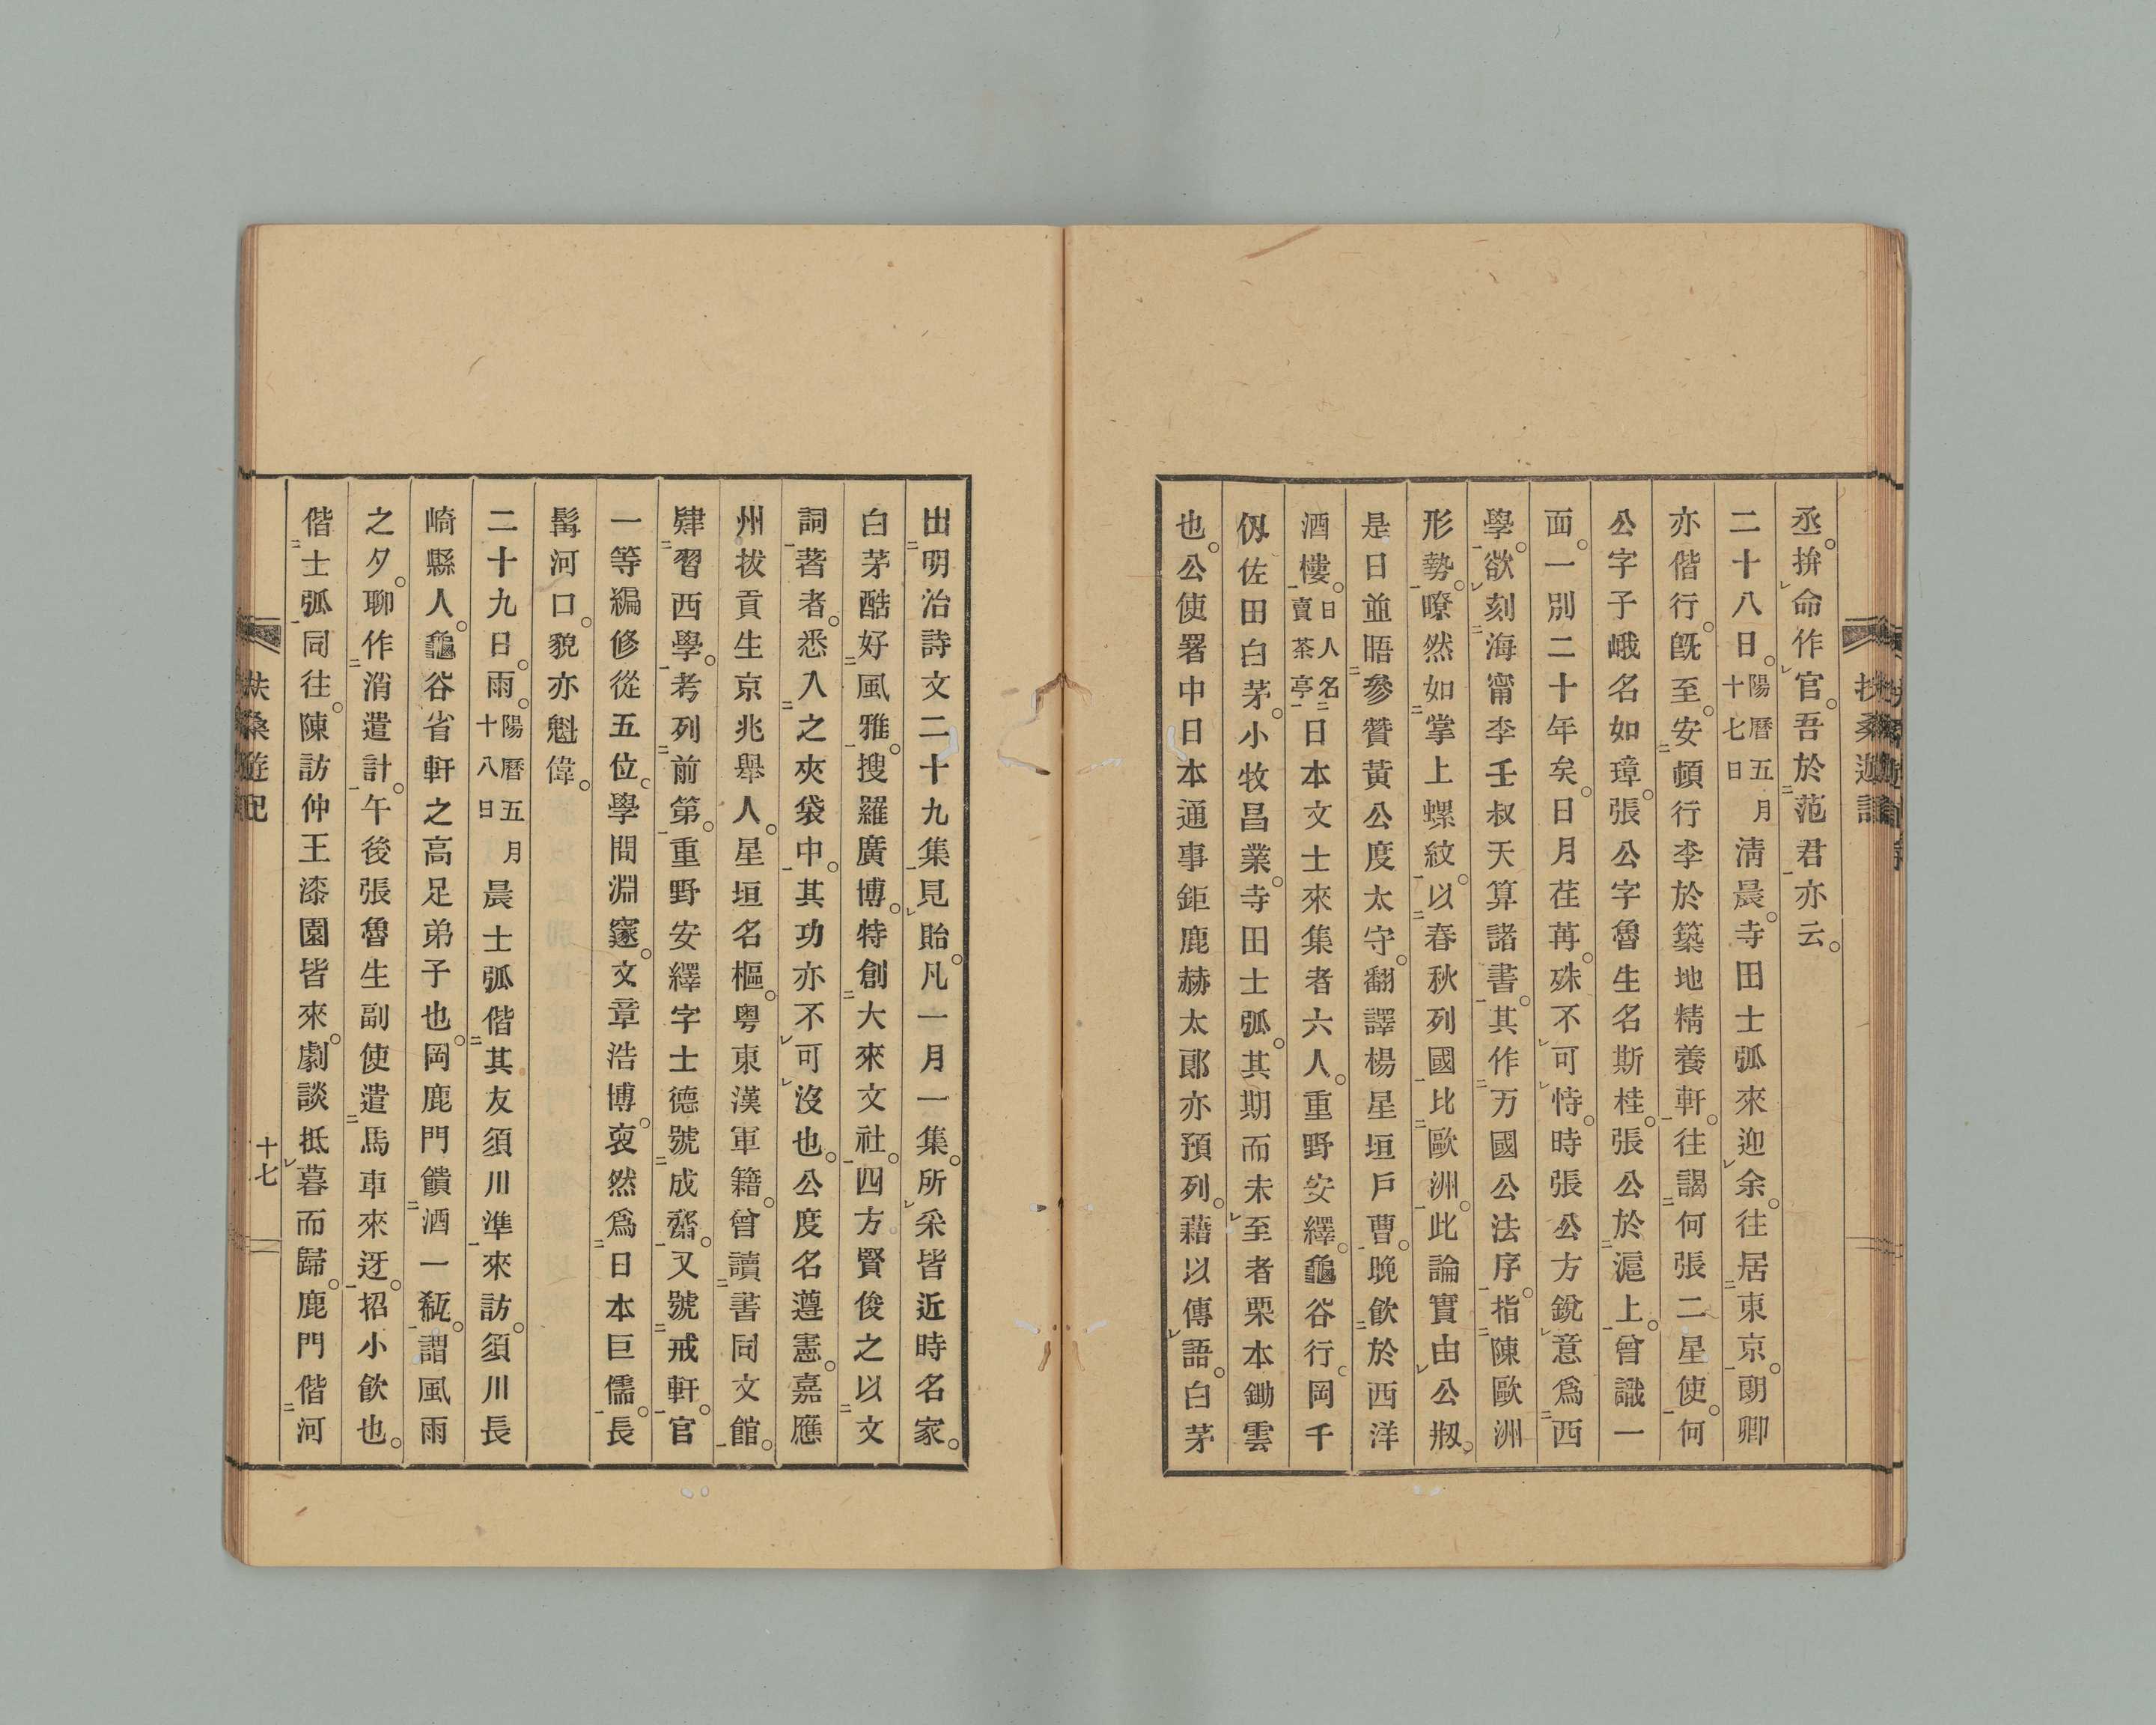 扶桑遊記
丞。拚命作官。吾於范君亦云。
二十八日。陽曆五月十七日淸晨。寺田士弧來迎余。往居東京。朗卿
亦偕行。旣至。安頓行李於築地精養軒。往謁何張二星使。何
公字子峨名如璋。張公字魯生名斯桂。張公於滬上。曾識一
面。一別二十年矣。日月荏苒。殊不可恃。時張公方銳意爲西
學。欲刻海甯李壬叔天算諸書。其作万國公法序。指陳歐洲
形勢。瞭然如掌上螺紋。以春秋列國比歐洲。此論實由公剏。
是日並晤參贊黃公度太守。翻譯楊星垣戶曹。晚飮於西洋
酒樓。日人名賣茶亭日本文士來集者六人。重野安繹。龜谷行。岡千
仭佐田白茅。小牧昌業。寺田士弧。其期而未至者栗本鋤雲
也。公使署中日本通事鉅鹿赫太郞亦預列。藉以傳語。白茅
出明治詩文二十九集見貽。凡一月一集。所采皆近時名家。
白茅酷好風雅。搜羅廣博。特創大來文社。四方賢俊之以文
詞著者。悉入之夾袋中。其功亦不可沒也。公度名遵憲。嘉應
州拔貢生京兆舉人。星垣名樞。粤東漢軍籍。曾讀書同文館。
肄習西學。考列前第。重野安繹字士德號成齋。又號戒軒。官
一等編修從五位。學問淵邃。文章浩博。裒然爲日本巨儒。長
髯河口。貌亦魁偉。
二十九日。雨。陽曆五月十八日晨士弧偕其友須川準來訪。須川長
崎縣人。龜谷省軒之高足弟子也。岡鹿門饋酒一瓻。謂風雨
之夕。聊作消遣計。午後張魯生副使遣馬車來迓。招小飮也。
偕士弧同往。陳訪仲王漆園皆來。劇談抵暮而歸。鹿門偕河
扶桑遊記
十七